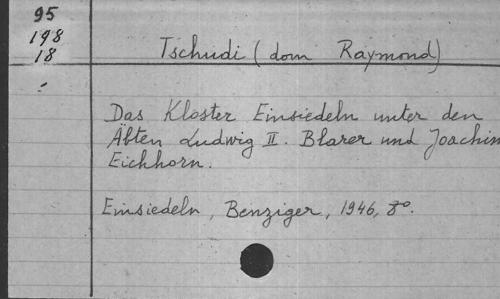 95
198
18
Tschudi (dom Raymond)
Das Kloster Einsiedeln unter den
Äbten Ludwig II. Blarer und Joachim
Eichhorn.
Einsiedeln, Benziger, 1946, 8°.